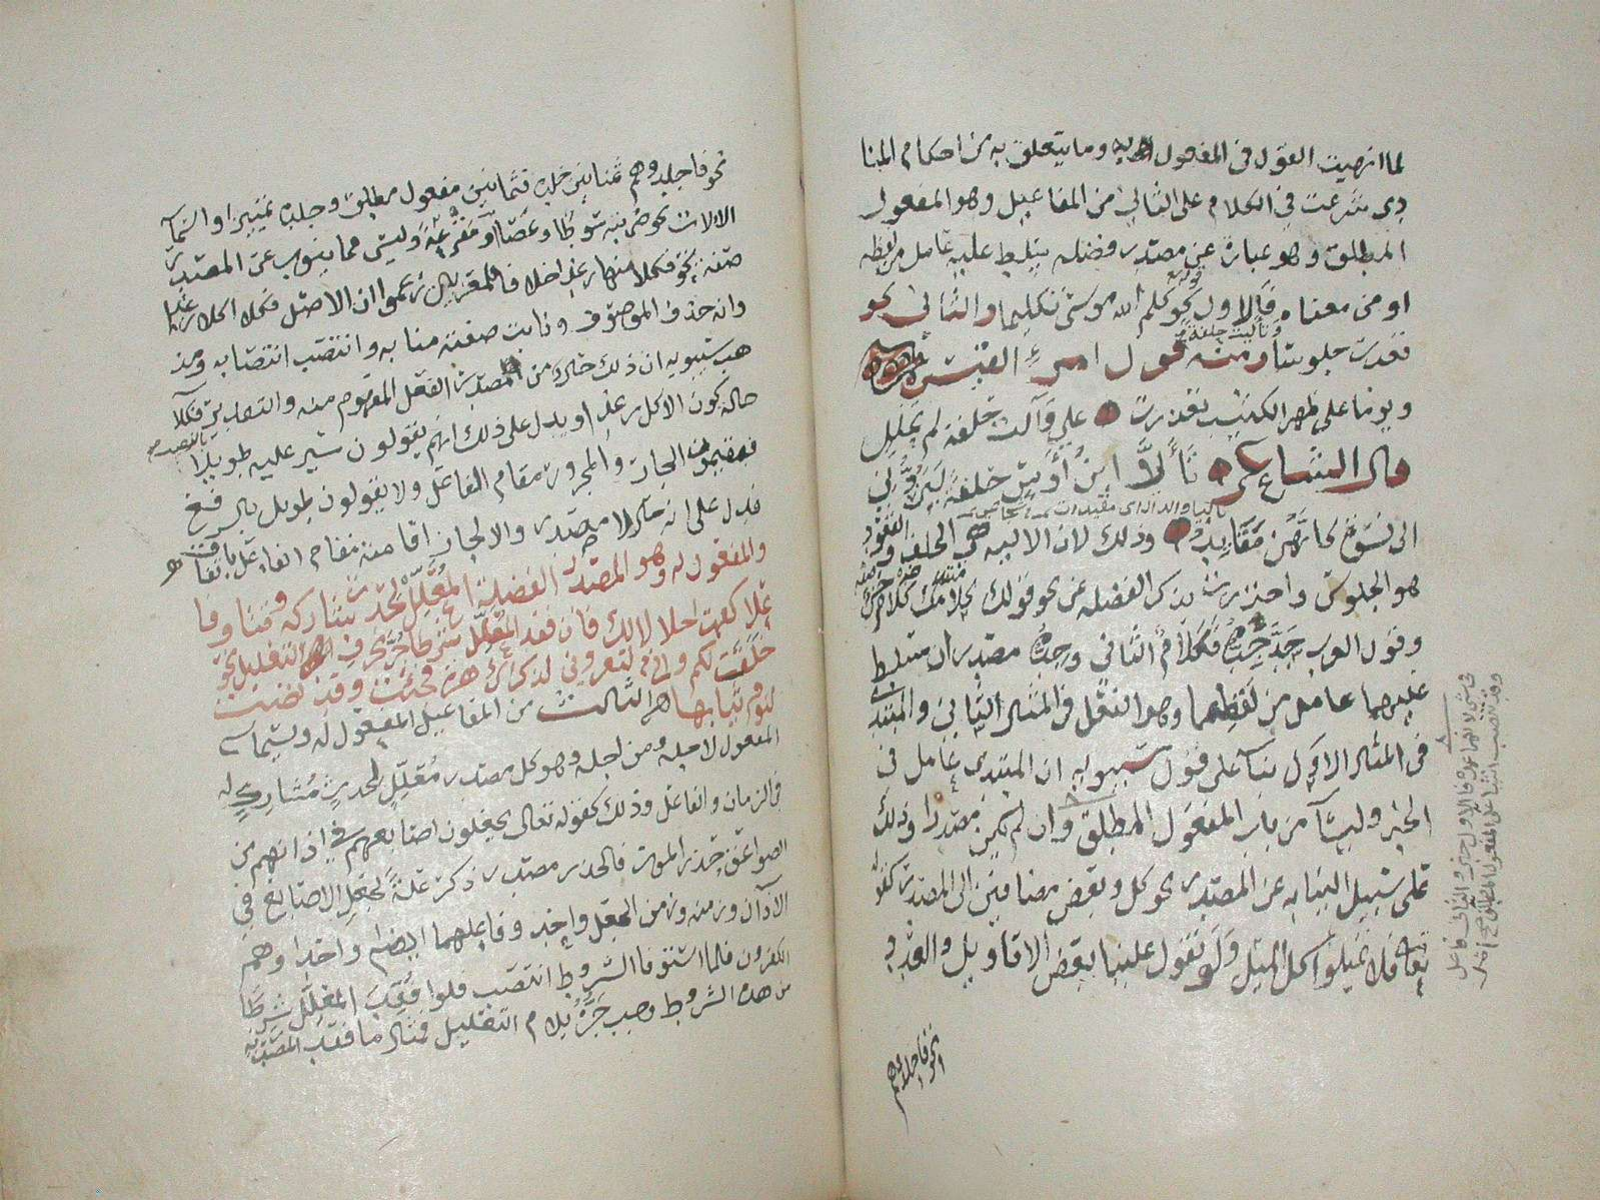 لما انهيت القول في المفعول به وما يتعلق به من احكام المنا
دى شرعت في الكلام على الثاني من المفاعيل وهو المفعول
المطلق وهو عبارة عن مصدر فضلة يتسلط عليه عامل من لفظه
او من معناه فالاول نحو كلم الله موسى تكليما والثاني نحو
قعدت جلوسا ومنه قول امرئ القيس
وتألت حلفة
ويوما على ظهر الكثيب تعذرت علي وآلت حلفة لم تحلل
قال الشاعر تألى ابن أوس حلفة ليردني
الى نسوة كأنهن مقايد وذلك لان الالية هي الحلف والقعود
هو الجلوس واحترزت بذكر الفضلة عن نحو قولك كلامك كلام حسن
وقول العرب جد جده فكلام الثاني وجده مصدران سلط
عليهما عامل من لفظهما وهو الفعل في المثال الثاني والمبتدى
في المثال الاول بناء على قول سيبويه ان المبتدى عامل في
الخبر وليسا من باب المفعول المطلق وان لم يكن مصدرا وذلك
على سبيل النيابة عن المصدر نحو كل وبعض مضافين الى المصدر كقوله
تعالى فلا تميلوا كل الميل ولو تقول علينا بعض الاقاويل والعدد
نحو فاجلدوهم
نحو فاجلدوهم ثمانين جلدة فثمانين مفعول مطلق وجلدة تمييز واسماء
الالات نحو ضربته سوطا وعصا او مقرعة وليس مما ينوب عن المصدر
صفته نحو فكلا منها رغدا خلافا للمعربين زعموا ان الاصل فكلا اكلا رغدا
وانه حذف الموصوف ونابت صفته منابه وانتصب انتصابه ومذ
هب سيبويه ان ذلك حال من مصدر الفعل المفهوم منه والتقدير فكلا
حالة كون الاكل رغدا ويدل على ذلك انهم يقولون سير عليه طويلا
فيقيمون الجار والمجرور مقام الفاعل ولا يقولون طويل بالرفع
فدل على انه حال لا مصدر والا لجاز اقامته مقام الفاعل باتفاق
والمفعول له وهو المصدر الفضلة المعلل لحدث شاركه وقتا وفا
علا كقمت اجلالا لك فان فقد المعلل شرطا جر بحرف التعليل نحو
خلق لكم واني لتعروني لذكراك هزة فجئت وقد نضت
لنوم ثيابها الثالث من المفاعيل المفعول له ويسمى
المفعول لاجله ومن اجله وهو كل مصدر معلل لحدث مشارك له
في الزمان والفاعل وذلك كقوله تعالى يجعلون اصابعهم في اذانهم من
الصواعق حذر الموت فالحذر مصدر ذكر علة لجعل الاصابع في
الآذان وزمنه وزمن الجعل واحد وفاعلهما ايضا واحد وهم
الكفرون فلما استوفا الشروط انتصب فلوا فقد المعلل شرطا
من هذه الشروط وجب جره بلام التعليل فمثال ما فقد المصدرية